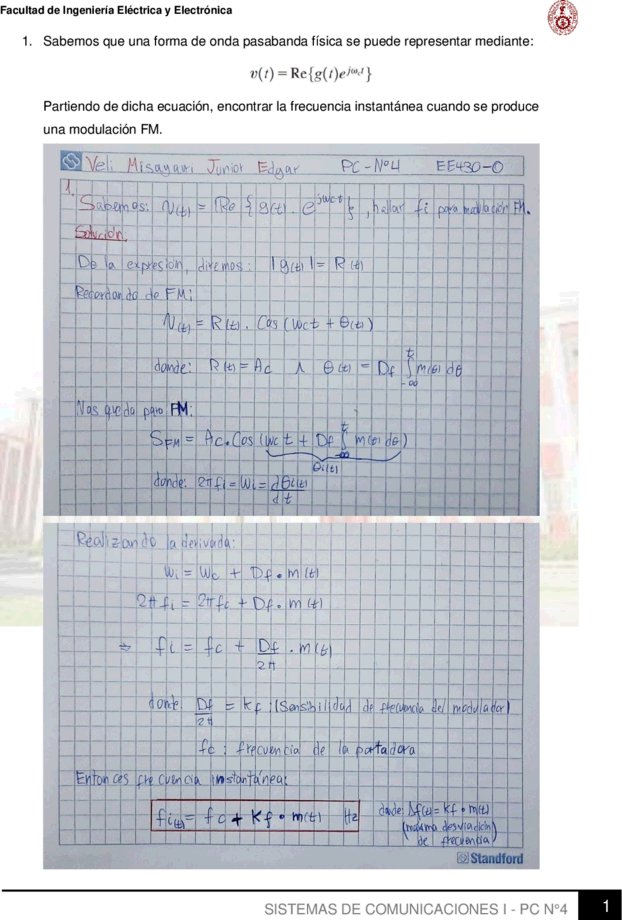 Facultad de Ingeniería Eléctrica y Electrónica
1. Sabemos que una forma de onda pasabanda física se puede representar mediante:
v(t) = Re{g(t)e^{jω_c t}}
Partiendo de dicha ecuación, encontrar la frecuencia instantánea cuando se produce
una modulación FM.
Veli Misayauri Junior Edgar PC-N°4 EE430-O
1.
Sabemos: V(t) = Re { g(t) . e^{jwct} }, hallar fi para modulación FM.
Solución.
De la expresión, diremos: |g(t)| = R(t)
Recordando de FM:
V(t) = R(t) . Cos (wct + θ(t))
donde: R(t) = Ac ∧ θ(t) = Df ∫_{-∞}^{t} m(σ) dσ
Nos queda para FM:
S_FM = Ac. Cos (wct + Df ∫_{-∞}^{t} m(σ) dσ)
θi(t)
donde: 2πfi = Wi = dθi(t)/dt
Realizando la derivada:
Wi = Wc + Df • m(t)
2πfi = 2πfc + Df . m(t)
⇒ fi = fc + Df/2π . m(t)
donde Df/2π = kf : (Sensibilidad de frecuencia del modulador)
fc : frecuencia de la portadora
Entonces frecuencia instantánea:
fi(t) = fc + Kf • m(t) Hz donde: Δf(t) = kf • m(t)
(máxima desviación
de frecuencia)
Standford
SISTEMAS DE COMUNICACIONES I - PC N°4 1